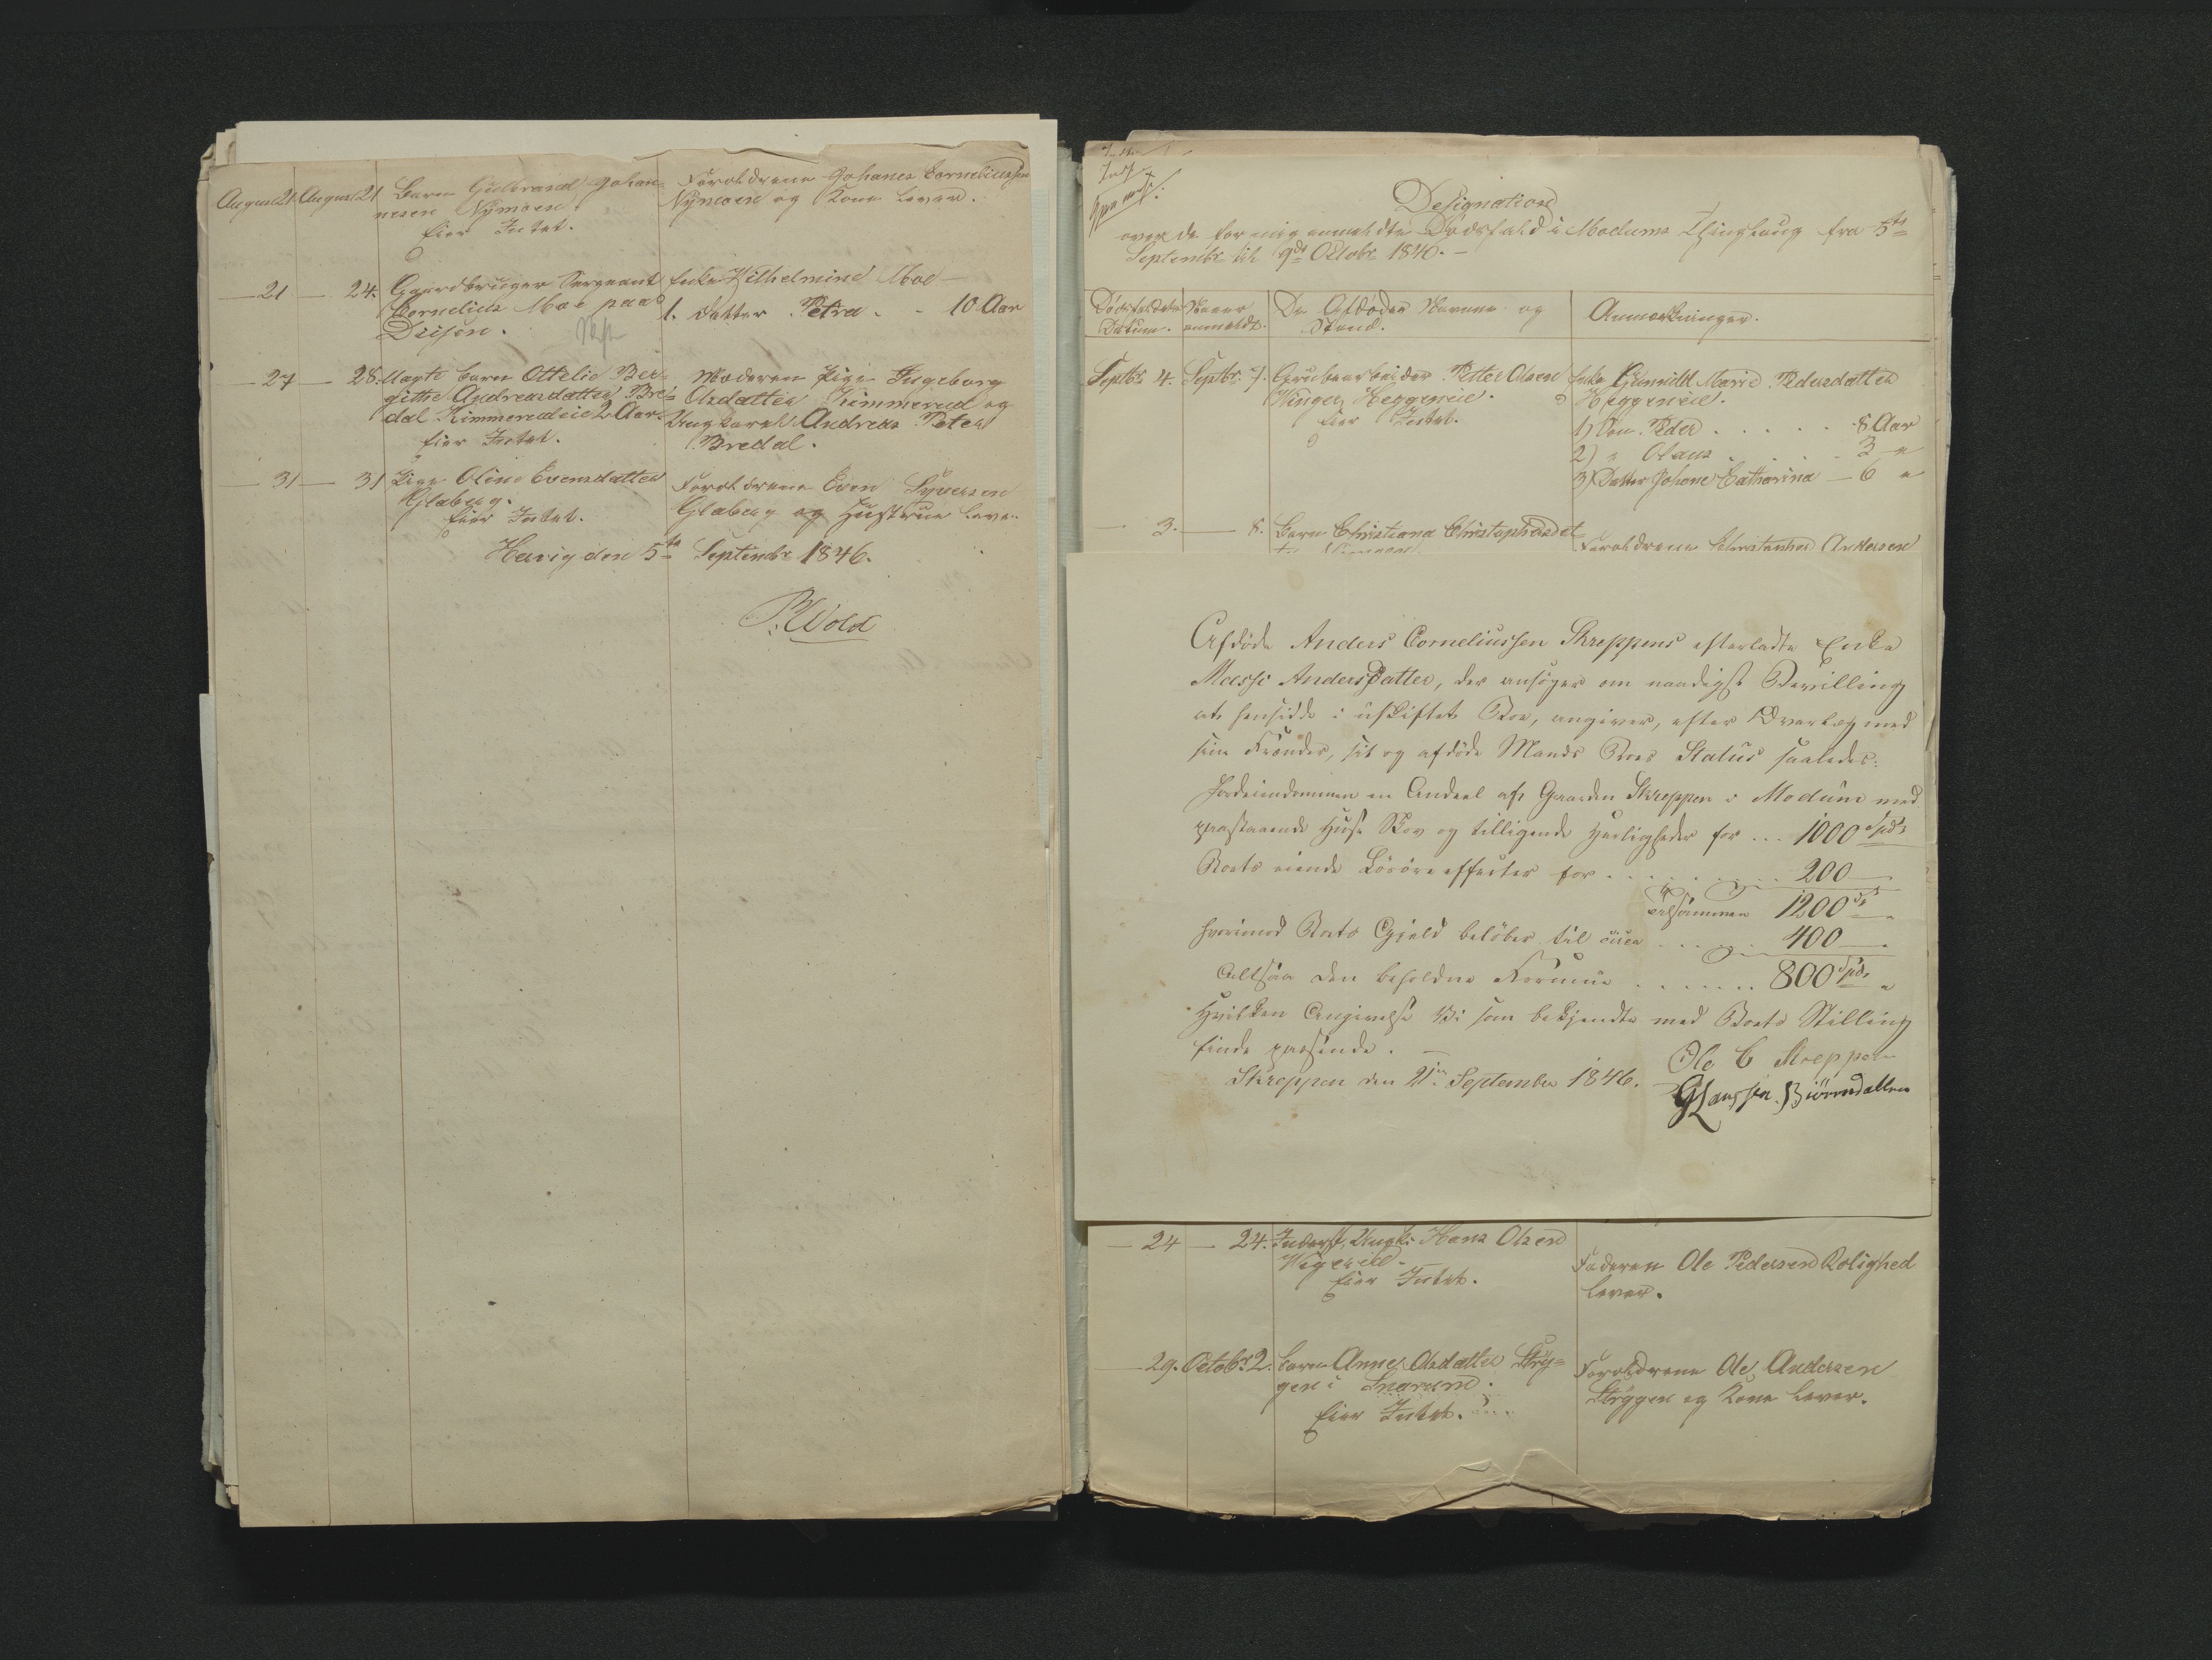 August 21. August 21 Barn Gulbrand Johan-
nesen Nymoen.
Eier Intet.
Forældrene Johanes Corneliussen
Nymoen og Kone lever.
— 21 — 24. Gaardbruger Sergeant
Cornelius Moe paa
Enke Wilhelmine Moe —
1. Datter Petra . . 10 Aar
— 27 — 28. Uægte Barn Ottelie Ber-
githe Andreasdatter Bre-
dal Kimmerudeie 2 Aar.
Eier Intet.
Moderen Pige Ingeborg
Olsdatter Kimmerud og
Ungkarl Andreas Peter
Bredal.
— 31 — 31 Pige Oline Evensdatter
Glaberg.
Eier Intet.
Forældrene Even Syversen
Glaberg og Hustrue leve.
Hærig den 5te Septembr 1846.
P. Wold
Designation
over de for mig anmeldte Dødsfald i Modums Thinglaug fra 5te
Septembr til 9de Octobr 1846. —
Dødsfaldets
Datum.
Naar
anmeldt.
De Afdødes Navne og
Stand.
Anmærkninger.
Septbr 4. Septbr 7. Grubearbeider Petter Olsen
Heggeneie.
Eier Intet.
Enke Gunnild Marie Pedersdatter
Heggeneie.
1) Søn Peder . . . . . 8 Aar
2) " Olaus . . . . . 3 "
3) Datter Johane Catharina — 6 "
— 3. — 8. Barn Christiana Christophersdat-
Forældrene Christopher Andersen
Afdöde Anders Corneliussen Skreppens efterladte Enke
Massi Andersdatter, der ansöger om naadigst Bevilling
at hensidde i uskiftet Boe, angiver, efter Overlæg med
sine Frænder, sit og afdöde Mands Boes Status saaledes:
Jordeiendommen en Andeel af Gaarden Skreppen i Modum med
paastaaende Huse Skov og tilligende Herligheder for ... 1000 Spd
Boets eiende Lösöreeffecter for . . . . . . 200 —
Tilsammen 1200 Sp
hvorimod Boets Gjeld belöber til circa . . . . 400 —
Altsaa den beholdne Formue . . . . . . . 800 Spd.
Hvilken Angivelse Vi som bekjendte med Boets Stilling
finde passende. —
Skreppen den 21de September 1846.
Ole C Skreppen
G Larssen Biörndallen
— 24 — 24. Inderst, Ungk: Hans Olsen
Eier Intet.
Faderen Ole Pedersen Rolighed
lever.
— 29. Octobr 2. Barn Anne Olsdatter Stry-
gen i Snarum.
Eier Intet.
Forældrene Ole Andersen
Stryggen og Kone lever.